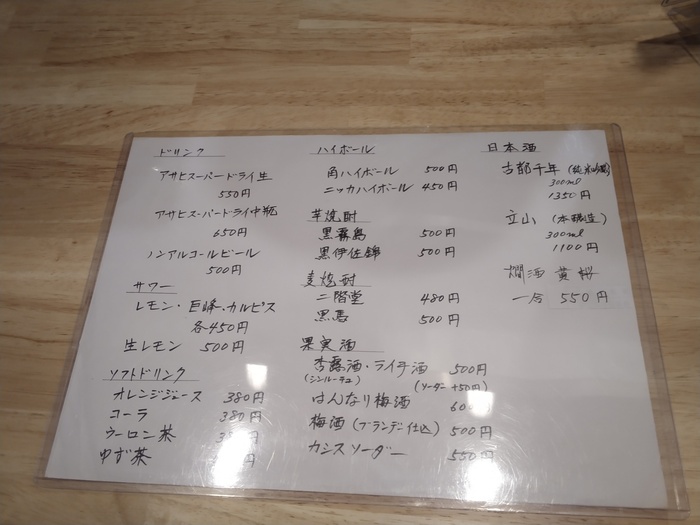 ドリンク
アサヒスーパードライ生
550円
アサヒスーパードライ中瓶
650円
ノンアルコールビール
500円
サワー
レモン・巨峰・カルピス
各450円
生レモン 500円
ソフトドリンク
オレンジジュース 380円
コーラ 380円
ウーロン茶
ゆず茶
ハイボール
角ハイボール 500円
ニッカハイボール 450円
芋焼酎
黒霧島 500円
黒伊佐錦 500円
麦焼酎
二階堂 480円
黒馬 500円
果実酒
杏露酒・ライチ酒 500円
(シンルーチュ) (ソーダー+50円)
はんなり梅酒
梅酒(ブランデー仕込) 500円
カシスソーダー 550円
日本酒
古都千年(純米吟醸)
300ml
1350円
立山(本醸造)
300ml
1100円
燗酒 黄桜
一合 550円